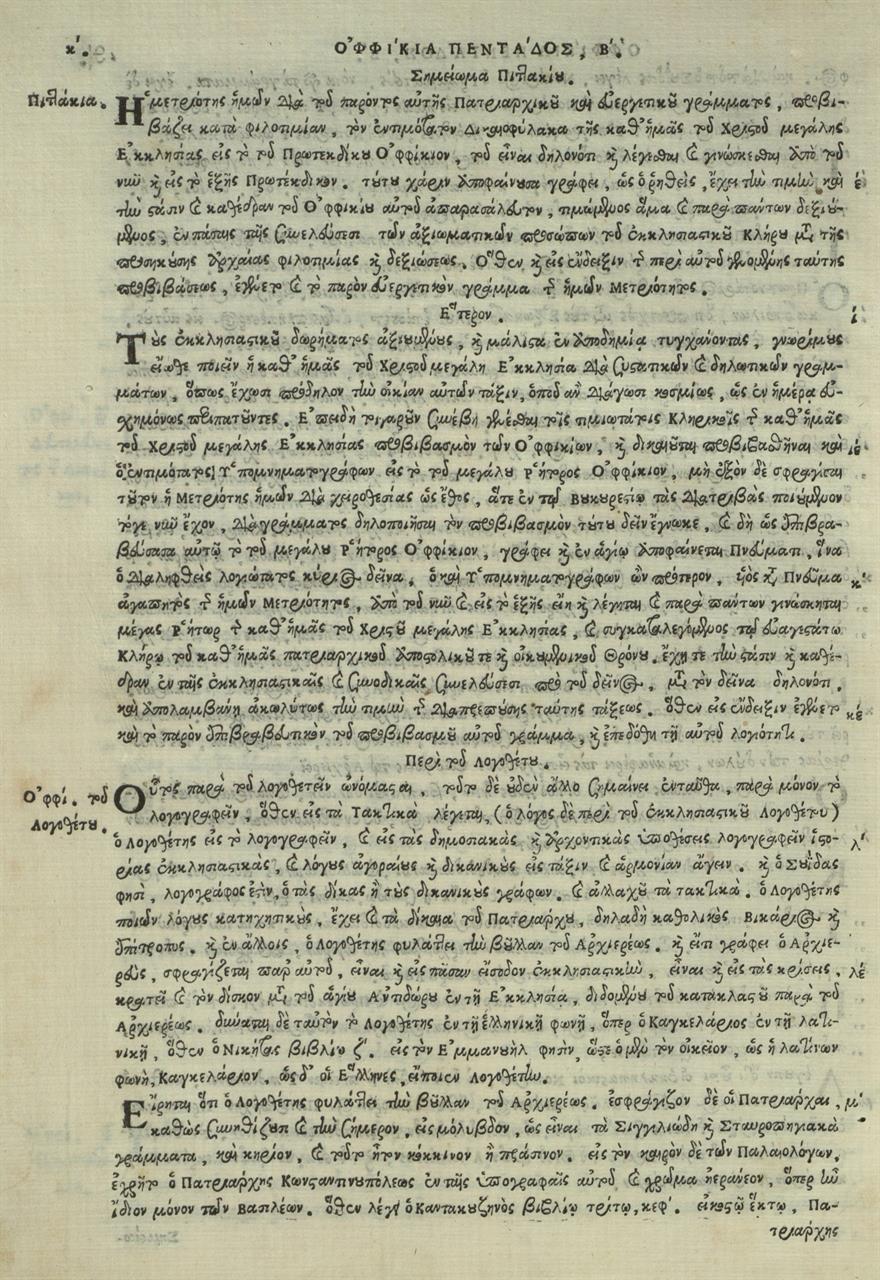 κʹ. ὈΦΦΊΚΙΑ ΠΕΝΤΆΔΟΣ, Βʹ.
Σημείωμα Πιττακίου.
Πιττάκια. Ἡ μετριότης ἡμῶν διὰ τοῦ παρόντος αὐτῆς Πατριαρχικοῦ καὶ εὐεργετικοῦ γράμματος, προβι-
βάζει κατὰ φιλοτιμίαν, τὸν ἐντιμότατον Δικαιοφύλακα τῆς καθ' ἡμᾶς τοῦ Χριστοῦ μεγάλης
Ἐκκλησίας εἰς τὸ τοῦ Πρωτεκδίκου Ὀφφίκιον, τοῦ εἶναι δηλονότι καὶ λέγεσθαι καὶ γινώσκεσθαι ἀπὸ τοῦ
νῦν καὶ εἰς τὸ ἑξῆς Πρωτέκδικον. τούτου χάριν ἀποφαίνουσα γράφει, ὡς ὁ ῥηθεὶς, ἔχει τὴν τιμὴν καὶ εʹ
τὴν στάσιν καὶ καθέδραν τοῦ Ὀφφικίου αὐτοῦ ἀπαρασάλευτον, τιμώμενος ἅμα καὶ παρὰ πάντων δεξιού-
μενος, ἐν πάσαις ταῖς συνελεύσεσι τῶν ἀξιωματικῶν προσώπων τοῦ ἐκκλησιαστικοῦ Κλήρου μετὰ τῆς
προσηκούσης ἀρχαίας φιλοτιμίας καὶ δεξιώσεως. Ὅθεν καὶ εἰς ἔνδειξιν τῆς περὶ αὐτοῦ γενομένης ταύτης
προβιβάσεως, ἐγένετο καὶ τὸ παρὸν εὐεργετικὸν γράμμα τῆς ἡμῶν Μετριότητος.
Ἕτερον. ιʹ
Τοὺς ἐκκλησιαστικοῦ δωρήματος ἀξιουμένους, καὶ μάλιστα ἐν ἀποδημίᾳ τυγχάνοντας, γνωρίμους
εἴωθε ποιεῖν ἡ καθ' ἡμᾶς τοῦ Χριστοῦ μεγάλη Ἐκκλησία διὰ συστατικῶν καὶ δηλωτικῶν γραμ-
μάτων, ὅπως ἔχωσι πρόδηλον τὴν οἰκείαν αὐτῶν τάξιν, ὅποδ' ἂν διάγωσι κοσμίως, ὡς ἐν ἡμέρᾳ εὐ-
σχημόνως περιπατοῦντες. Ἐπειδὴ τοιγαροῦν συνέβη γενέσθαι τοῖς τιμιωτάτοις Κληρικοῖς τῆς καθ' ἡμᾶς
τοῦ Χριστοῦ μεγάλης Ἐκκλησίας προβιβασμὸν τῶν Ὀφφικίων, καὶ δικαιοῦται προβιβασθῆναι καὶ ιεʹ
ὁ ἐντιμότατος Ὑπομνηματογράφων εἰς τὸ τοῦ μεγάλου Ῥήτορος Ὀφφίκιον, μὴ ἐξὸν δὲ σφραγίσαι
τοῦτον ἡ Μετριότης ἡμῶν διὰ χειροθεσίας ὡς ἔθος, ἅτε ἐν τῷ Βουκουρεστίῳ τὰς διατριβὰς ποιούμενον
τόγε νῦν ἔχον, διὰ γράμματος δηλοποιῆσαι τὸν προβιβασμὸν τούτου δεῖν ἔγνωκε, καὶ δὴ ὡς ἐπιβρα-
βεύσασα αὐτῷ τὸ τοῦ μεγάλου Ῥήτορος Ὀφφίκιον, γράφει καὶ ἐν ἁγίῳ ἀποφαίνεται Πνεύματι, ἵνα
ὁ διαληφθεὶς λογιώτατος κύριος δεῖνα, ὁ καὶ Ὑπομνηματογράφων ὢν πρότερον, υἱὸς κατὰ Πνεῦμα κʹ
ἀγαπητὸς τῆς ἡμῶν Μετριότητος, ἀπὸ τοῦ νῦν καὶ εἰς τὸ ἑξῆς εἴη καὶ λέγηται καὶ παρὰ πάντων γινώσκηται
μέγας Ῥήτωρ τῆς καθ' ἡμᾶς τοῦ Χριστοῦ μεγάλης Ἐκκλησίας, καὶ συγκαταλεγόμενος τῷ εὐαγεστάτῳ
Κλήρῳ τοῦ καθ' ἡμᾶς πατριαρχικοῦ ἀποστολικοῦ τε καὶ οἰκουμενικοῦ Θρόνου. ἔχῃ τε τὴν στάσιν καὶ καθέ-
δραν ἐν ταῖς ἐκκλησιαστικαῖς καὶ συνοδικαῖς συνελεύσεσι πρὸ τοῦ δεῖνος, μετὰ τὸν δεῖνα δηλονότι,
καὶ ἀπολαμβάνῃ ἀκωλύτως τὴν τιμὴν τῆς διαπρεπούσης ταύτης τάξεως. ὅθεν εἰς ἔνδειξιν ἐγένετο κεʹ
καὶ τὸ παρὸν ἐπιβραβευτικὸν τοῦ προβιβασμοῦ αὐτοῦ γράμμα, καὶ ἐπεδόθη τῇ αὐτοῦ λογιότητι.
Περὶ τοῦ Λογοθέτου.
Ὀφφί. τοῦ Λογοθέτου. Οὗτος παρὰ τοῦ λογοθετεῖν ὠνόμασται, τοῦτο δὲ οὐδὲν ἄλλο σημαίνει ἐνταῦθα, παρὰ μόνον τὸ
λογογραφεῖν, ὅθεν εἰς τὰ Τακτικὰ λέγεται, (ὁ λόγος δὲ περὶ τοῦ ἐκκλησιαστικοῦ Λογοθέτου)
ὁ Λογοθέτης εἰς τὸ λογογραφεῖν, καὶ εἰς τὰς δημοσιακὰς καὶ ἀρχοντικὰς ὑποθέσεις λογογραφεῖν ἱστο- λʹ
ρίας ἐκκλησιαστικὰς, καὶ λόγους ἀγοραίους καὶ δικανικοὺς εἰς τάξιν καὶ ἁρμονίαν ἄγειν. καὶ ὁ Σουίδας
φησὶ, λογογράφος ἐστὶν, ὁ τὰς δίκας ἢ τοὺς δικανικοὺς γράφων. καὶ ἀλλαχοῦ τὰ τακτικὰ. ὁ Λογοθέτης
ποιῶν λόγους κατηχητικοὺς, ἔχει καὶ τὰ δίκαια τοῦ Πατριάρχου, δηλαδὴ καθολικὸς Βικάριος καὶ
ἐπίτροπος. καὶ ἐν ἄλλοις, ὁ Λογοθέτης φυλάττει τὴν βοῦλλαν τοῦ Ἀρχιερέως. καὶ εἴτι γράφει ὁ Ἀρχιε-
ρεὺς, σφραγίζεται παρ' αὐτοῦ, εἶναι καὶ εἰς πᾶσαν εἴσοδον ἐκκλησιαστικὴν, εἶναι καὶ εἰς τὰς κρίσεις, λεʹ
κρατεῖ καὶ τὸν δίσκον μετὰ τοῦ ἁγίου Ἀντιδώρου ἐν τῇ Ἐκκλησίᾳ, διδομένου τοῦ κατακλαστοῦ παρὰ τοῦ
Ἀρχιερέως. δύναται δὲ ταὐτὸν τὸ Λογοθέτης ἐν τῇ ἑλληνικῇ φωνῇ, ὅπερ ὁ Καγκελάριος ἐν τῇ λατι-
νικῇ, ὅθεν ὁ Νικήτας βιβλίῳ ζʹ. εἰς τὸν Ἐμμανουὴλ φησὶν, ὥστε ὁ μὲν τὸν οἰκεῖον, ὡς ἡ λατίνων
φωνὴ, Καγκελάριον, ὡς δ' οἱ Ἕλληνες, εἴποιεν Λογοθέτην.
Εἴρηται ὅτι ὁ Λογοθέτης φυλάττει τὴν βοῦλλαν τοῦ Ἀρχιερέως. ἐσφράγιζον δὲ οἱ Πατριάρχαι, μʹ
καθὼς συνηθίζουσι καὶ τὴν σήμερον, εἰς μόλυβδον, ὡς εἶναι τὰ Σιγγιλιώδη καὶ Σταυροπηγιακὰ
γράμματα, καὶ κηρίον, καὶ τοῦτο ἦτον κόκκινον ἢ πράσινον. εἰς τὸν καιρὸν δὲ τῶν Παλαιολόγων,
ἐχρῆτο ὁ Πατριάρχης Κωνσταντινουπόλεως ἐν ταῖς ὑπογραφαῖς αὐτοῦ καὶ χρῶμα ἠεράνεον, ὅπερ ἦν
ἴδιον μόνον τῶν Βασιλέων. ὅθεν λέγει ὁ Καντακουζηνὸς βιβλίῳ τρίτῳ, κεφ'. εἰκοστῷ ἕκτῳ, Πα-
τριάρχης